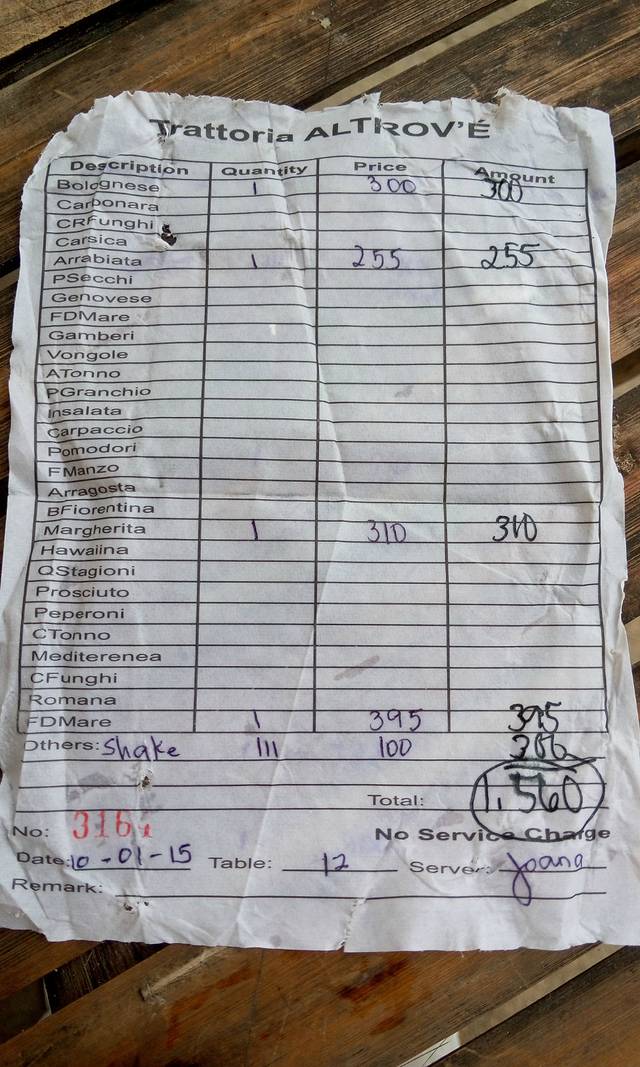 Trattoria ALTROV'É
Description Quantity Price Amount
Bolognese 1 300 300
Carbonara
CRFunghi
Carsica
Arrabiata 1 255 255
PSecchi
Genovese
FDMare
Gamberi
Vongole
ATonno
PGranchio
Insalata
Carpaccio
Pomodori
FManzo
Arragosta
BFiorentina
Margherita 1 310 310
Hawaiina
QStagioni
Prosciuto
Peperoni
CTonno
Mediterenea
CFunghi
Romana
FDMare 1 395 395
Others: Shake 111 100 300
Total: 1,560
No: 316
No Service Charge
Date: 10-01-15 Table: 12 Server: Joana
Remark: